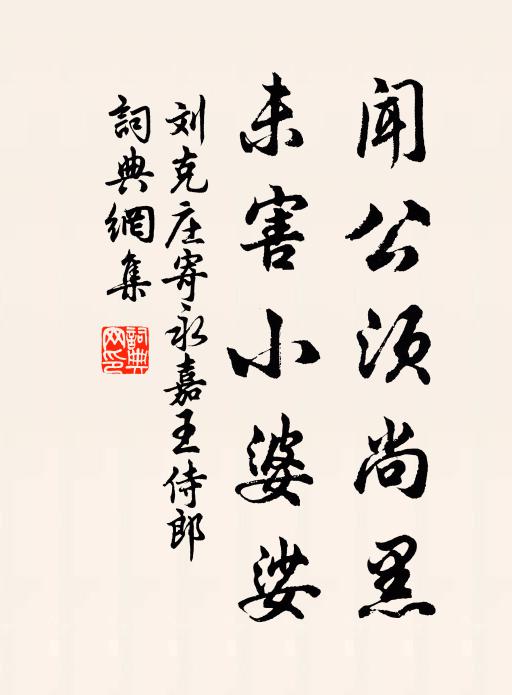 闻公须尚黑
未害小婆娑
刘克庄寄永嘉王侍郎
詞典網集
詞典
网印